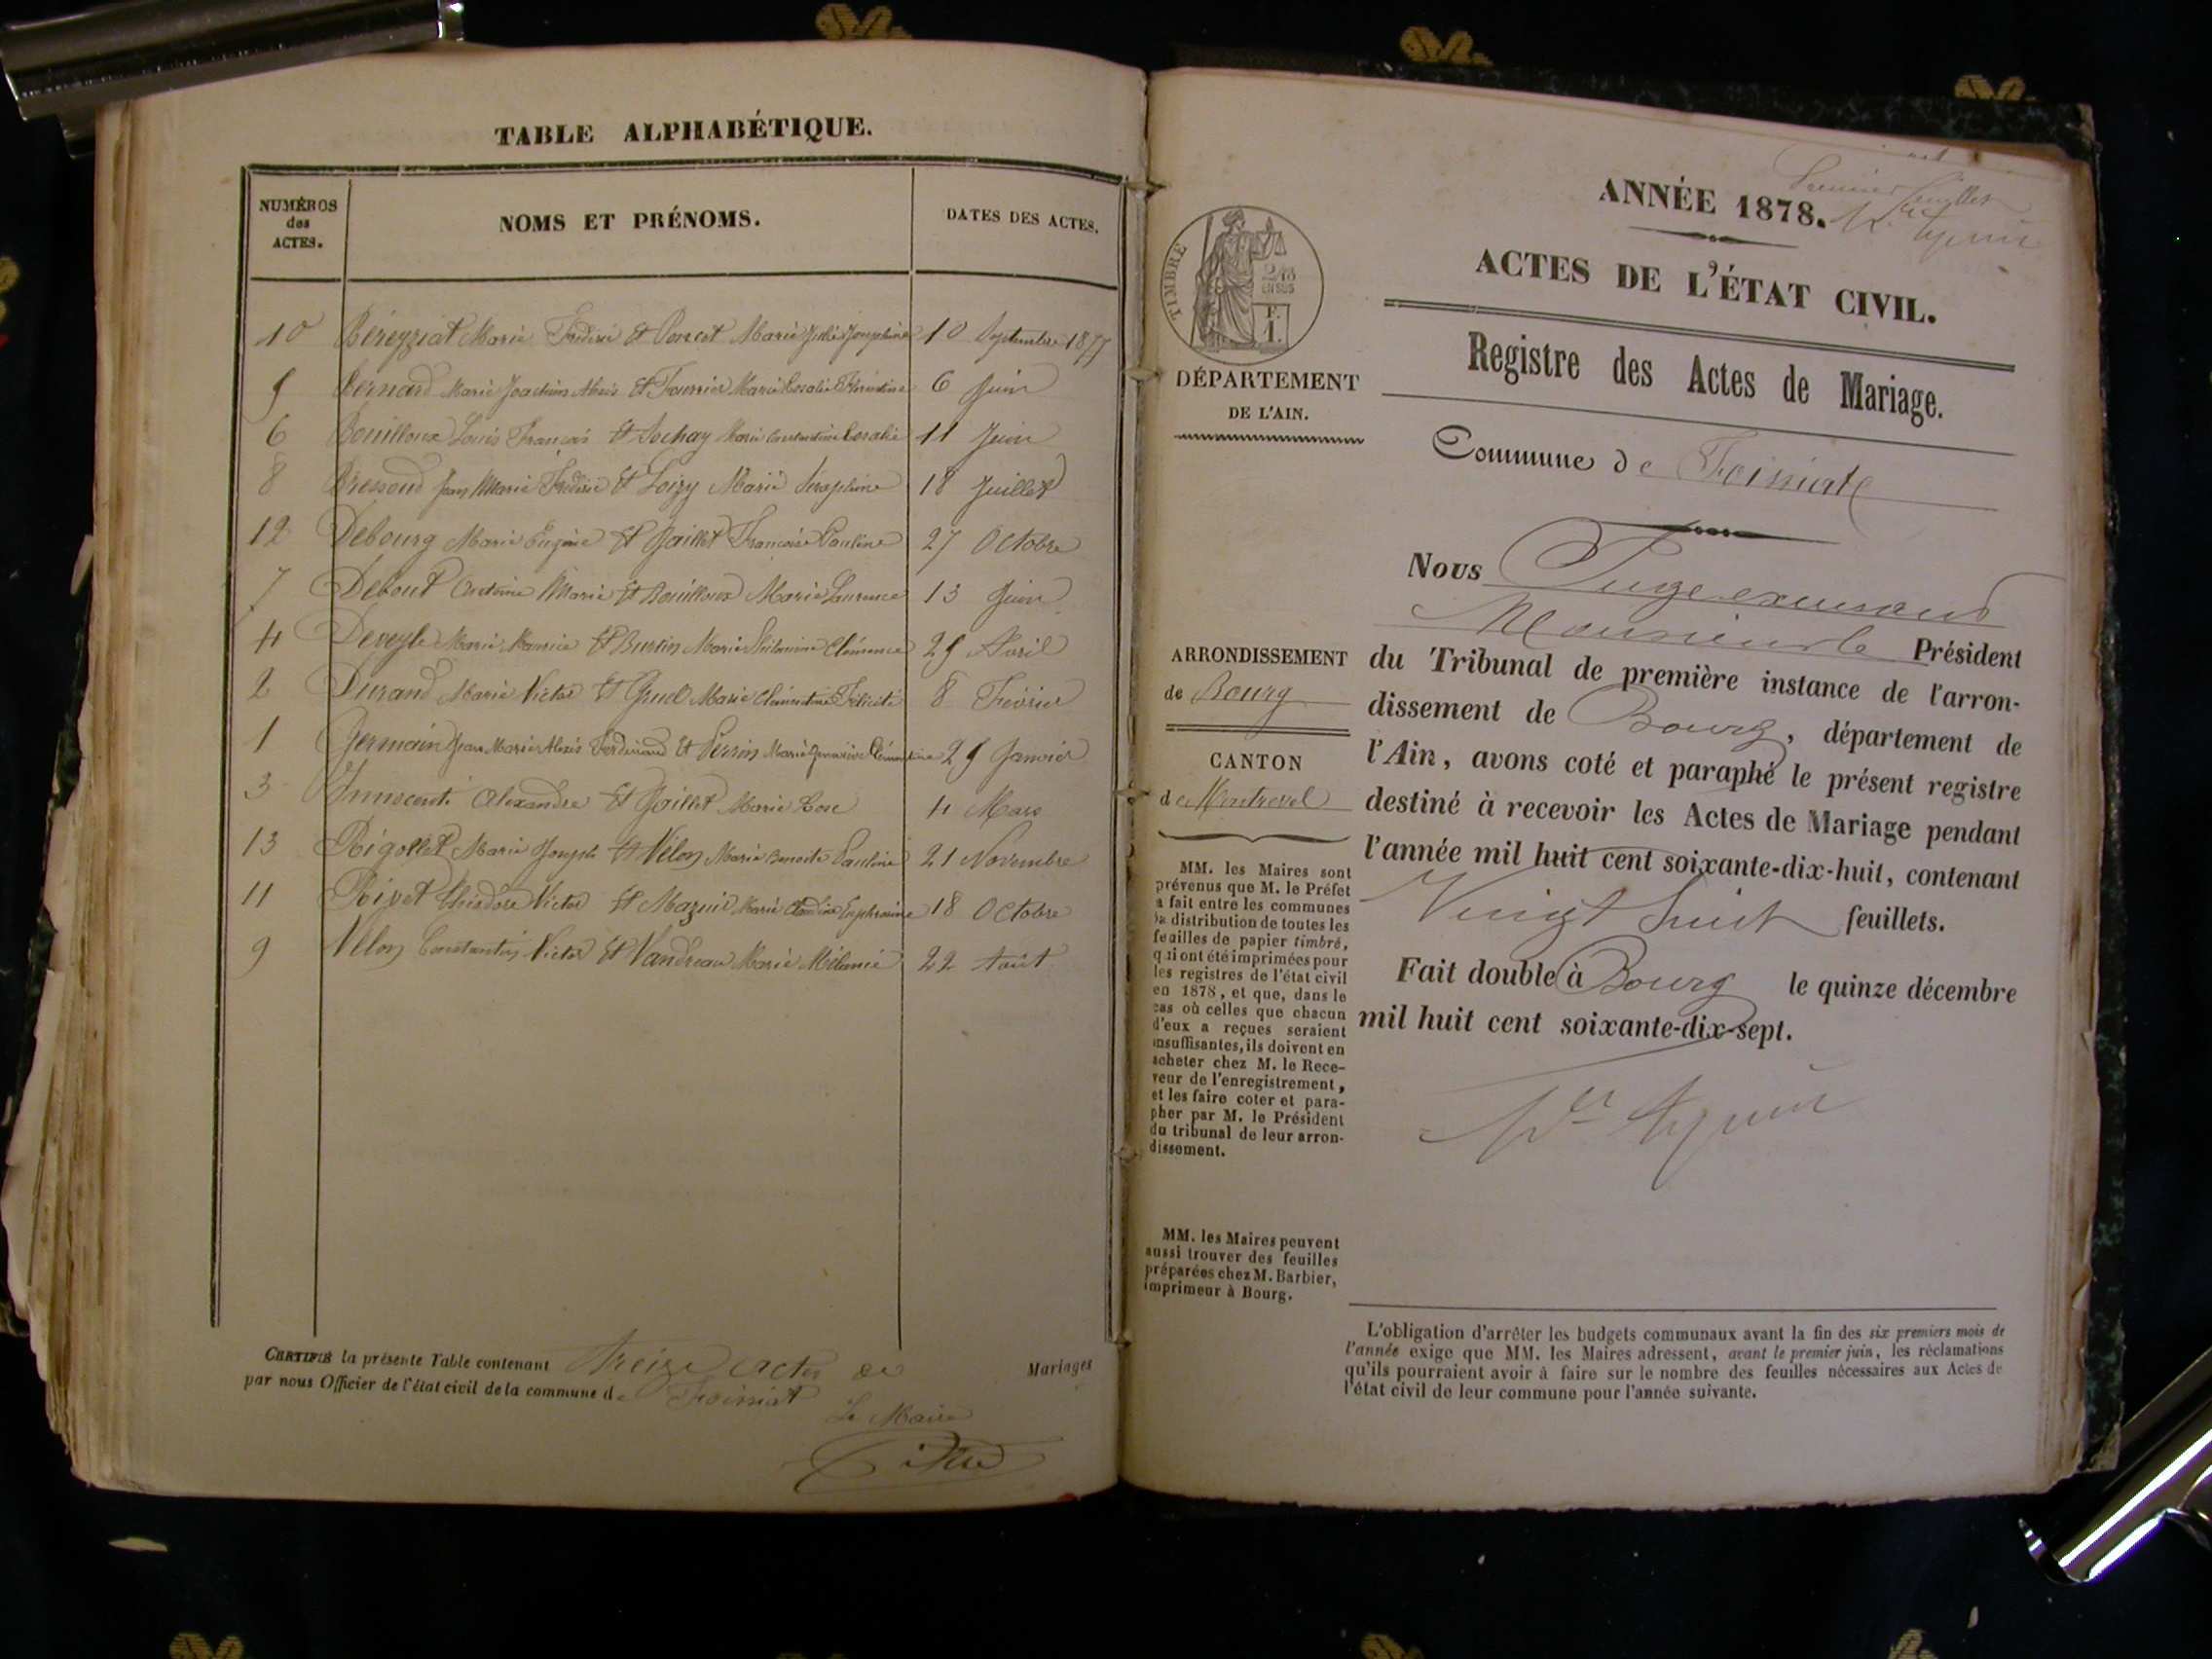 TABLE ALPHABÉTIQUE.
NUMÉROS
des
ACTES.
NOMS ET PRÉNOMS.
DATES DES ACTES.
10 Béreyziat Marie Frédéric Et Poncet Marie Julie Joséphine 10 Septembre 1877
5 Bernard Marie Joachim Alexis Et Fournier Marie Rosalie Florentine 6 Juin
6 Bouilloux Louis François Et Sochay Marie Constantine Rosalie 11 Juin
8 Bressoud Jean Marie Frédéric Et Loizy Marie Séraphine 18 Juillet
12 Debourg Marie Eugène Et Gaillet Françoise Pauline 27 Octobre
7 Debout Antoine Marie Et Bouilloux Marie Laurence 13 Juin
4 Deveyle Marie Maurice Et Burtin Marie Philomine Clémence 25 Avril
2 Durand Marie Victor Et Gruel Marie Clémentine Félicité 8 Février
1 Germain Jean Marie Alexis Ferdinand Et Perrin Marie Clémentine 25 Janvier
3 Innocenti Alexandre Et Gaillet Marie Rose 4 Mars
13 Rigollet Marie Joseph Et Vélon Marie Benoite Pauline 21 Novembre
11 Rivet Théodore Victor Et Mazuir Marie Claudine Euphrasine 18 Octobre
9 Vélon Constantin Victor Et Vandreau Marie Mélanie 22 Août
CERTIFIÉ la présente Table contenant treize actes de Mariages
par nous Officier de l'état civil de la commune de Foissiat
Le Maire
Premier feuillet
ANNÉE 1878.
ACTES DE L'ÉTAT CIVIL.
Registre des Actes de Mariage.
TIMBRE
2/10
EN SUS
F.
1.
DÉPARTEMENT
DE L'AIN.
Commune de Foissiat
Nous Juge excusant
Monsieur le Président
du Tribunal de première instance de l'arron-
dissement de Bourg, département de
l'Ain, avons coté et paraphé le présent registre
destiné à recevoir les Actes de Mariage pendant
l'année mil huit cent soixante-dix-huit, contenant
Vingt huit feuillets.
Fait double à Bourg le quinze décembre
mil huit cent soixante-dix-sept.
ARRONDISSEMENT
de Bourg
CANTON
de Montrevel
MM. les Maires sont
prévenus que M. le Préfet
a fait entre les communes
la distribution de toutes les
feuilles de papier timbré,
qui ont été imprimées pour
les registres de l'état civil
en 1878, et que, dans le
cas où celles que chacun
d'eux a reçues seraient
insuffisantes, ils doivent en
acheter chez M. le Rece-
veur de l'enregistrement,
et les faire coter et para-
pher par M. le Président
du tribunal de leur arron-
dissement.
MM. les Maires peuvent
aussi trouver des feuilles
préparées chez M. Barbier,
imprimeur à Bourg.
L'obligation d'arrêter les budgets communaux avant la fin des six premiers mois de
l'année exige que MM. les Maires adressent, avant le premier juin, les réclamations
qu'ils pourraient avoir à faire sur le nombre des feuilles nécessaires aux Actes de
l'état civil de leur commune pour l'année suivante.